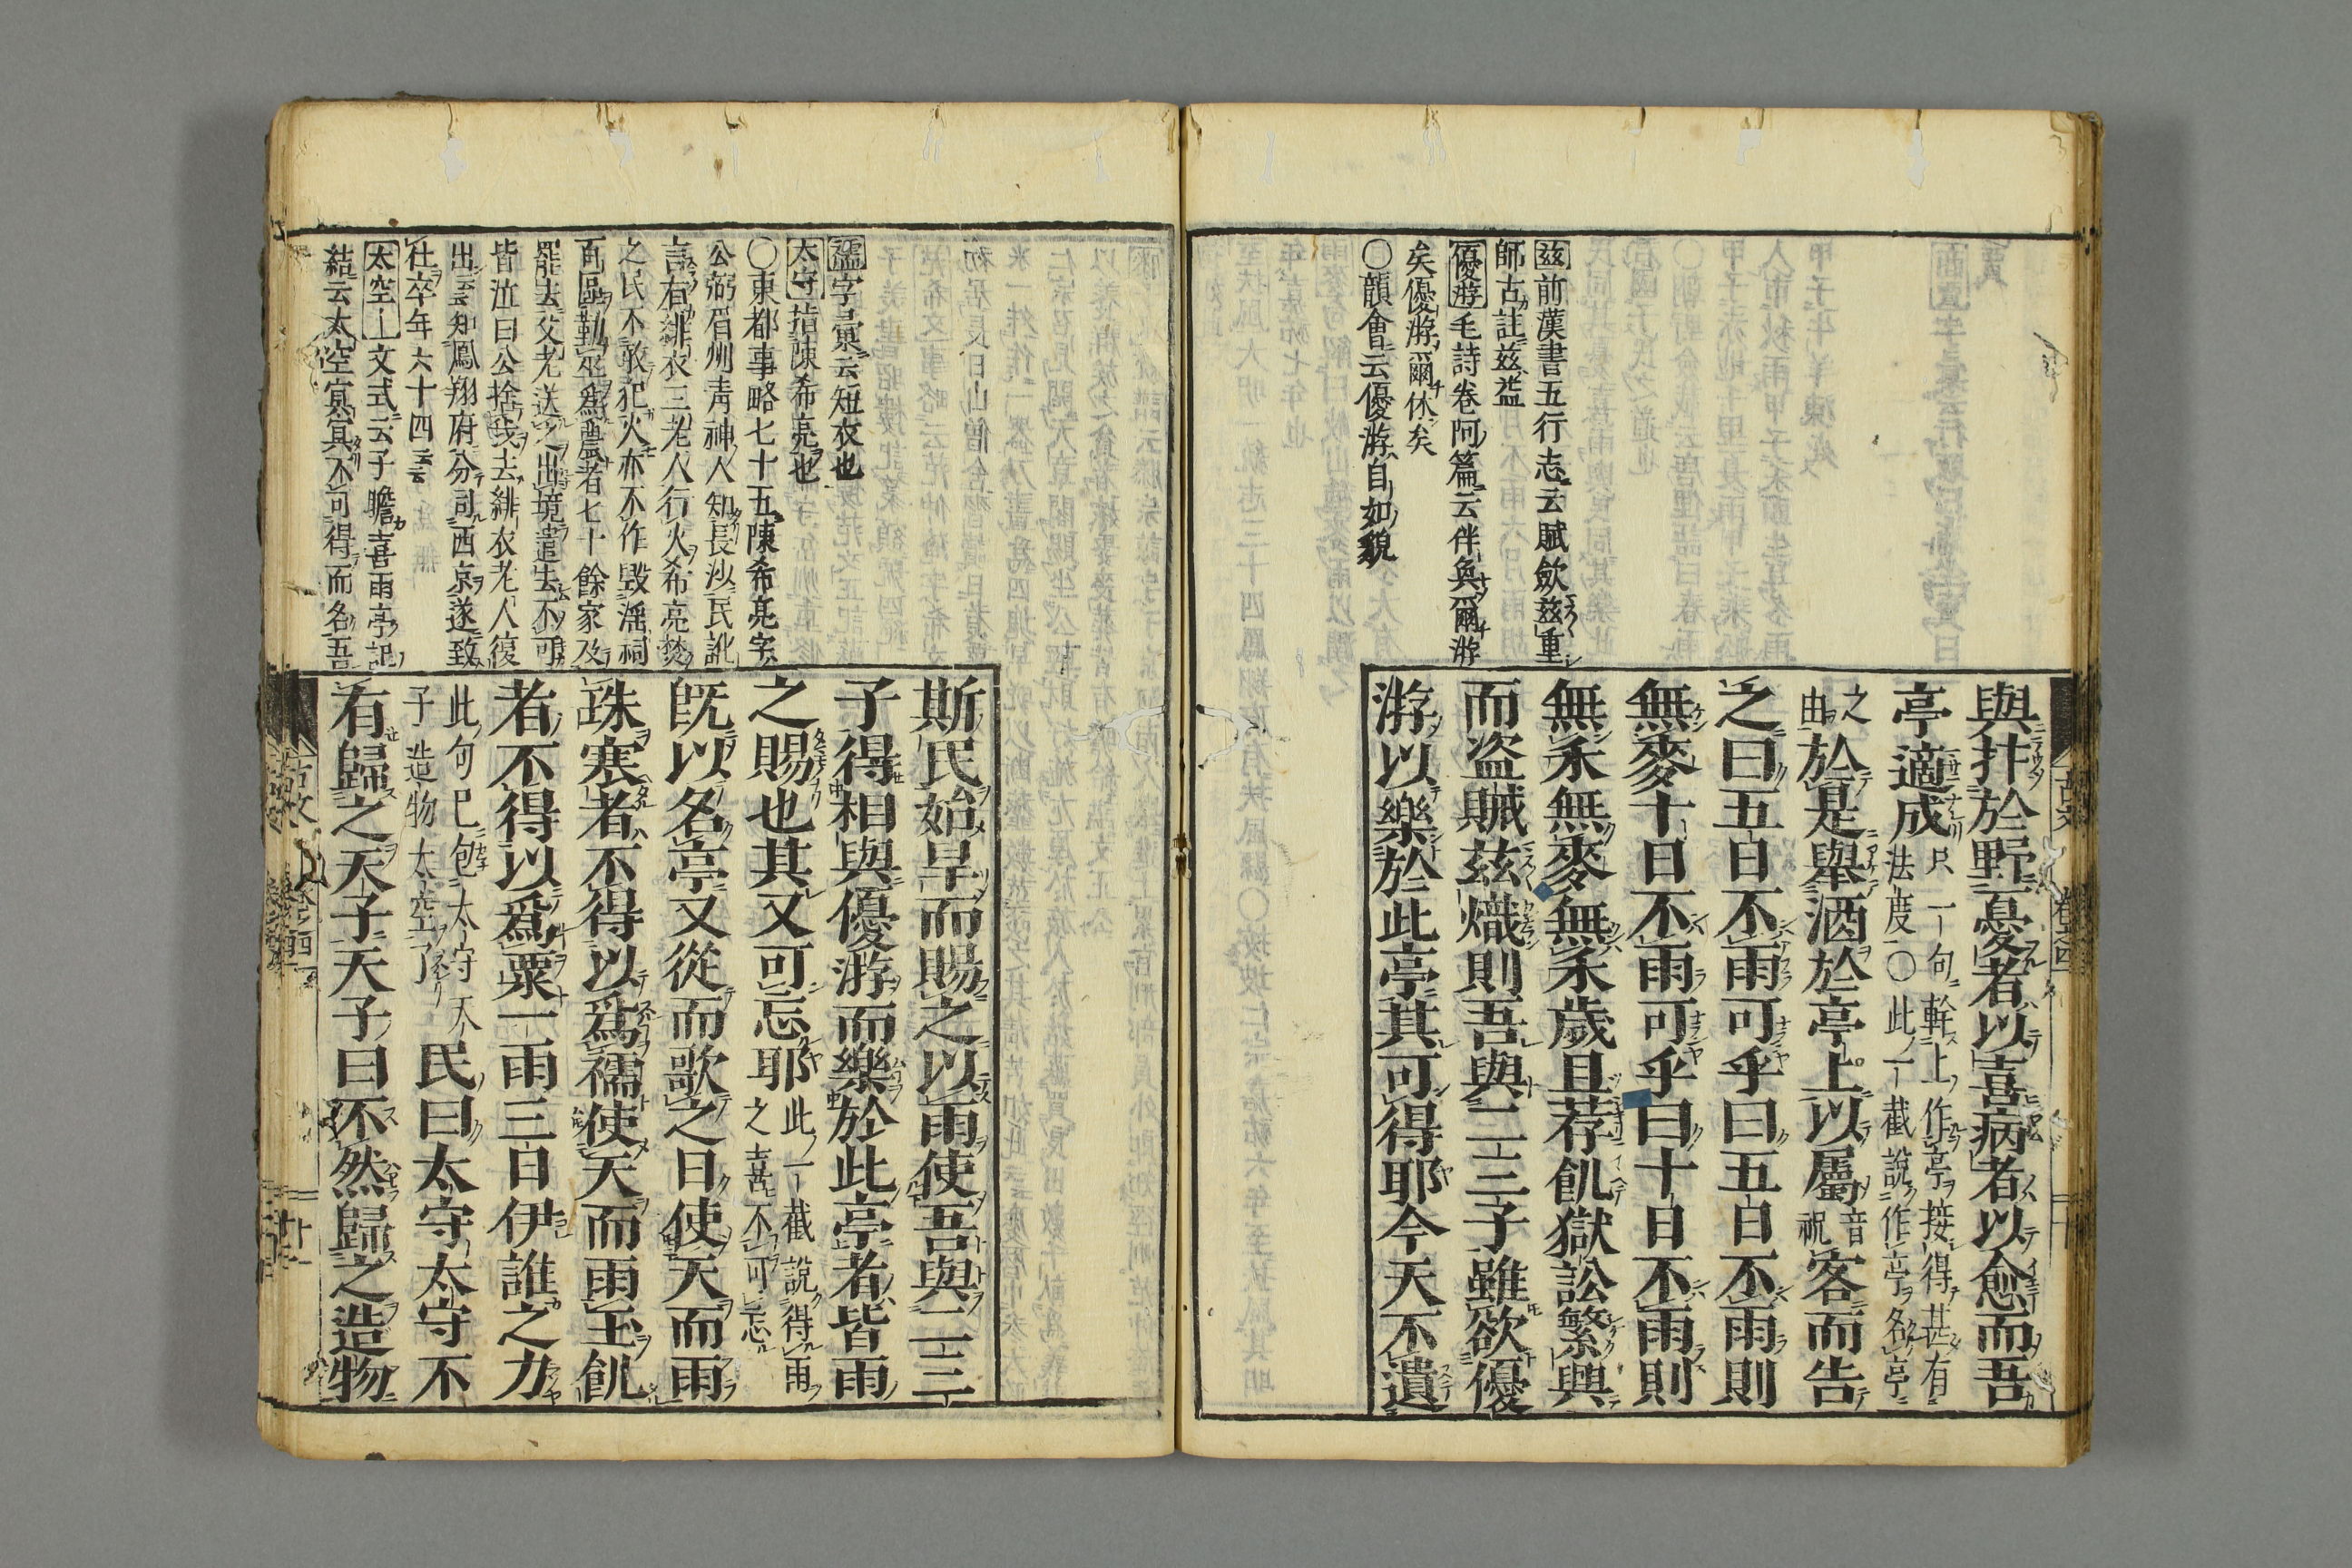 茲前漢書五行志云賦歛茲重
師古註茲益
優游毛詩卷阿篇云伴奐爾游
矣優游爾休矣
〇韻會云優游自如貌
與抃於野憂者以喜病者以愈而吾
亭適成只一句幹上作亭接得甚有
法度〇此一截說作亭名亭
之由於是舉酒於亭上以屬音祝客而告
之曰五日不雨可乎曰五日不雨則
無麥十日不雨可乎曰十日不雨則
無禾無麥無禾歲且荐飢獄訟繁興
而盗賊茲熾則吾與二三子雖欲優
游以樂於此亭其可得耶今天不遺
襦字彙云短衣也
太守指陳希亮也
〇東都事略七十五陳希亮字
公弼眉州靑神人知長沙民訛
言有緋衣三老人行火希亮焚
之民不敢犯火亦不作毀滛祠
百區勒巫爲農者七十餘家及
罷去父老送之出境遣去不可
皆泣曰公捨我去緋衣老人復
出云云知鳳翔府分司西京遂致
仕卒年六十四云云
太空文式云子瞻喜雨亭記
結云太空冥冥不可得而名吾
斯民始旱而賜之以雨使吾與二三
子得相與優游而樂於此亭者皆雨
之賜也其又可忘耶此一截說得雨
之喜不可忘
旣以名亭又從而歌之曰使天而雨
珠寒者不得以爲襦使天而雨玉飢
者不得以爲粟一雨三日伊誰之力
此句已包太守天
子造物太空了民曰太守太守不
有歸之天子天子曰不然歸之造物